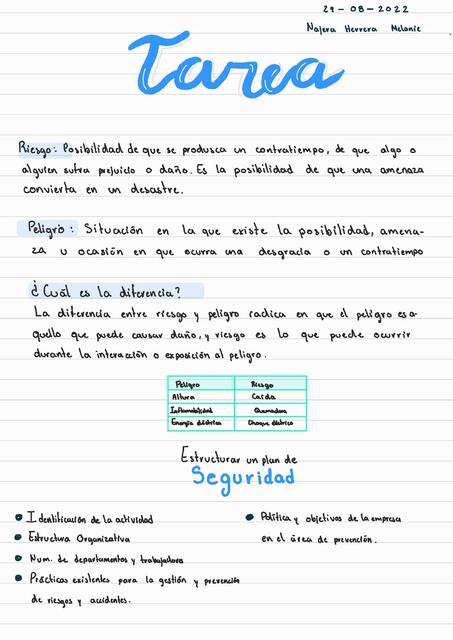 29-08-2022
Najera Herrera Melanie
Tarea
Riesgo: Posibilidad de que se produsca un contratiempo, de que algo o
alguien sufra prejuicio o daño. Es la posibilidad de que una amenaza
convierta en un desastre.
Peligro: Situación en la que existe la posibilidad, amena-
za u ocasión en que ocurra una desgracia o un contratiempo
¿Cuál es la diferencia?
La diferencia entre riesgo y peligro radica en que el peligro es a-
quello que puede causar daño, y riesgo es lo que puede ocurrir
durante la interacción o exposición al peligro.
Peligro Riesgo
Altura Caída
Inflamabilidad Quemadura
Energía eléctrica Choque eléctrico
Estructurar un plan de
Seguridad
Identificación de la actividad
Estructura Organizativa
Num. de departamentos y trabajadores
Prácticas existentes para la gestión y prevención
de riesgos y accidentes.
Política y objetivos de la empresa
en el área de prevención.